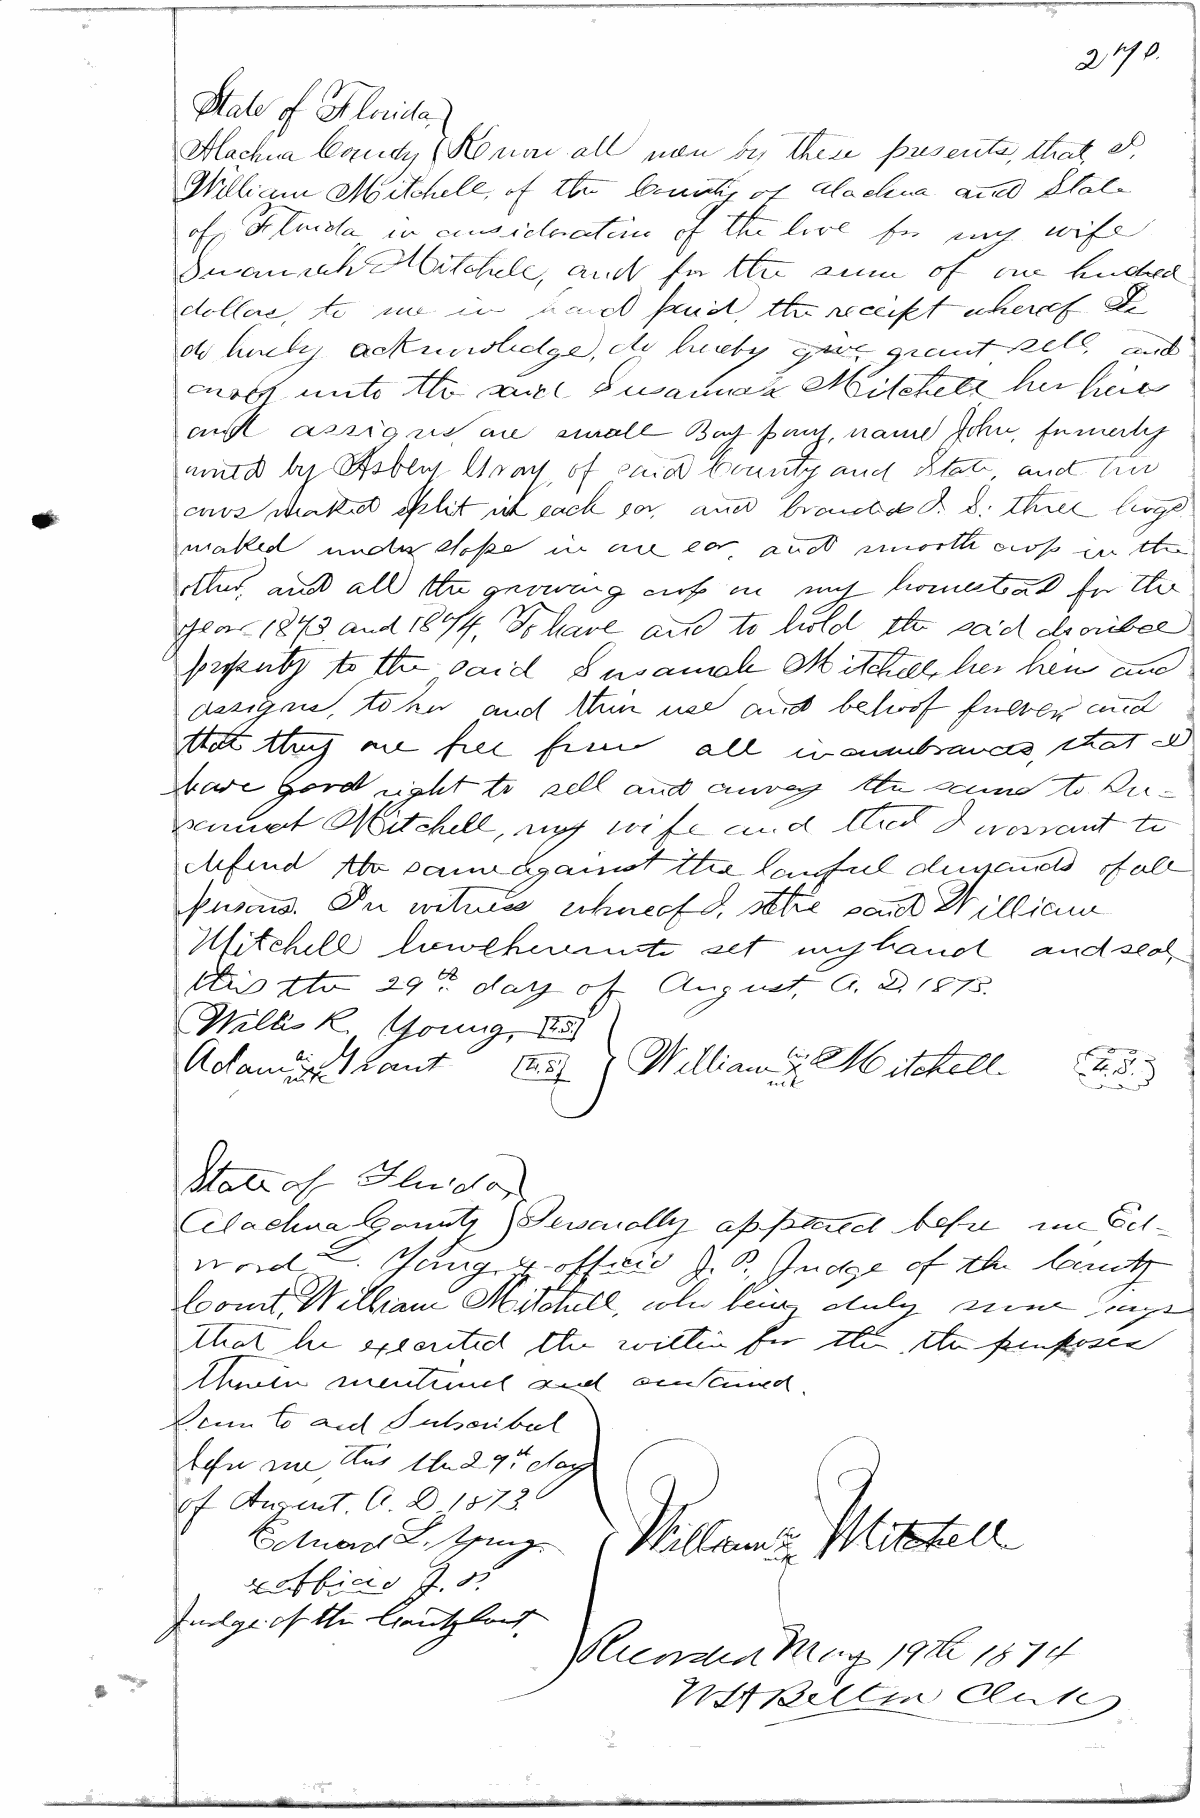 270.
State of Florida }
Alachua County } Know all men by these presents, that, I,
William Mitchell, of the County of Alachua and State
of Florida, in consideration of the love for my wife
Susannah Mitchell, and for the sum of one hundred
dollars, to me in hand paid, the receipt whereof I
do hereby acknowledge, do hereby give, grant sell, and
convey unto the said Susannah Mitchell, her heirs
and assigns, one small Bay pony, name John, formerly
owned by Asbery Gray, of said County and State, and two
cows marked split in each ear, and branded I. S. three hogs
marked under slope in one ear, and smooth crop in the
other, and all the growing crop on my homestead for the
year 1873 and 1874, To have and to hold the said discribed
property to the said Susannah Mitchell, her heirs and
assigns, to her and their use and behoof forever, and
that they are free from all incumbrances, that I
have good right to sell and convey the same to Su-
sannah Mitchell, my wife and that I warrant to
defend the same against the lawful demands of all
persons. In witness whereof I, the said William
Mitchell have hereunto set my hand and seal,
this the 29th day of August, A. D. 1873.
Willis R. Young, [L.S.]
Adam his x mrk Grant [L.S.] } William his x mrk Mitchell (L.S.)
State of Florida }
Alachua County } Personally appeared before me Ed-
ward L. Young, ex-officio J. P. Judge of the County
Court, William Mitchell, who being duly sworn says
that he executed the within for the the purposes
therein mentioned and contained.
Sworn to and Subscribed
before me, this the 29th day
of August. A. D. 1873
Edward L. Young
ex officio J. P.
Judge of the County Court.
William his x mrk Mitchell
Recorded May 19th 1874
W H Belton Clerk